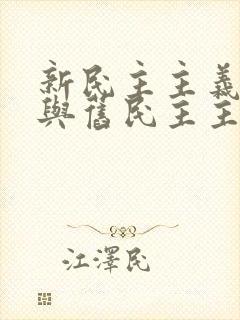 新民主主義
與舊民主主
江澤民